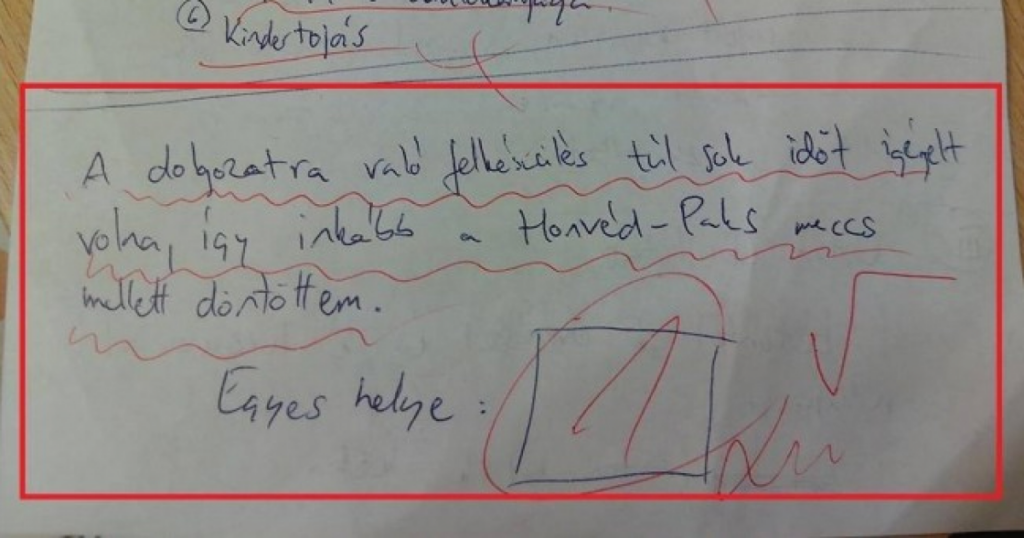 ⑥
Kindertojás
A dolgozatra való felkészülés túl sok időt igényelt
volna, így inkább a Honvéd-Paks meccs
mellett döntöttem.
Egyes helye:
1